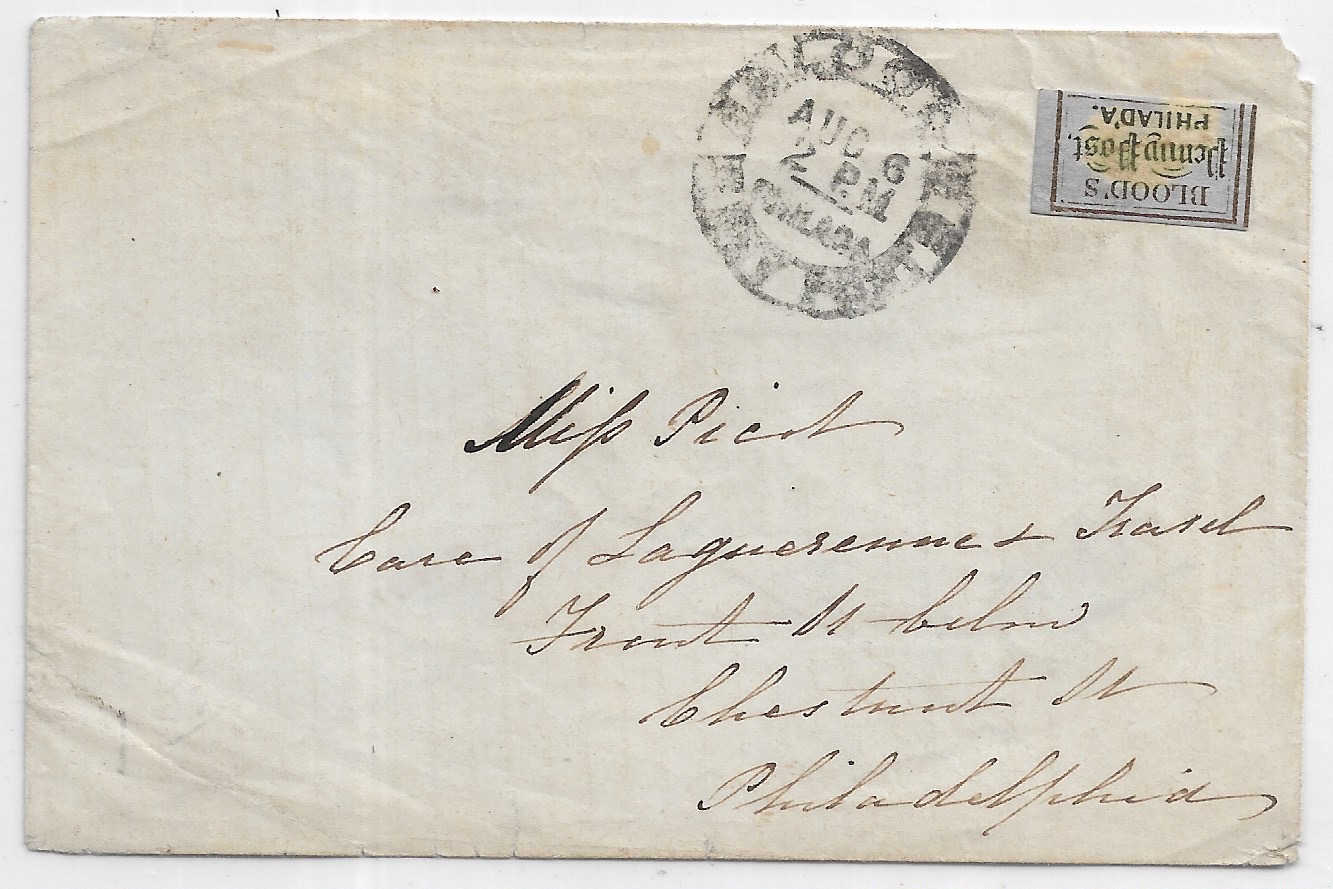 AUG 6
2 PM
BLOOD'S
Penny Post,
PHILAD'A.
Miss Picot
Care of Laguerenne &
Front St belw
Chestnut St
Philadelphia